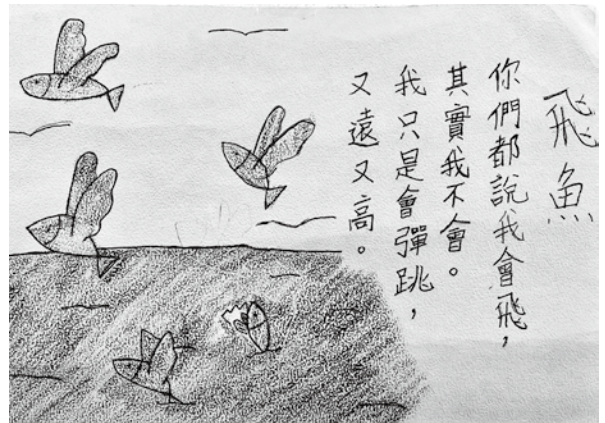 飛魚
你們都說我會飛，
其實我不會。
我只是會彈跳，
又遠又高。